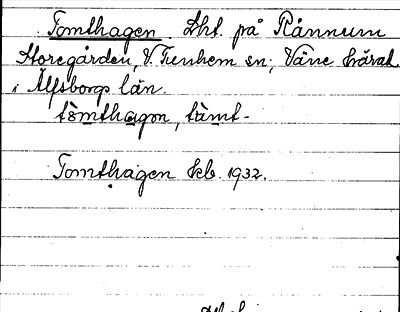 Tomthagen. Lht. på Rånnum
Storegården, V. Tunhem sn; Väne härad
i Älfsborgs län.
tòmthagon, tàmt-
Tomthagen Ekb. 1932.